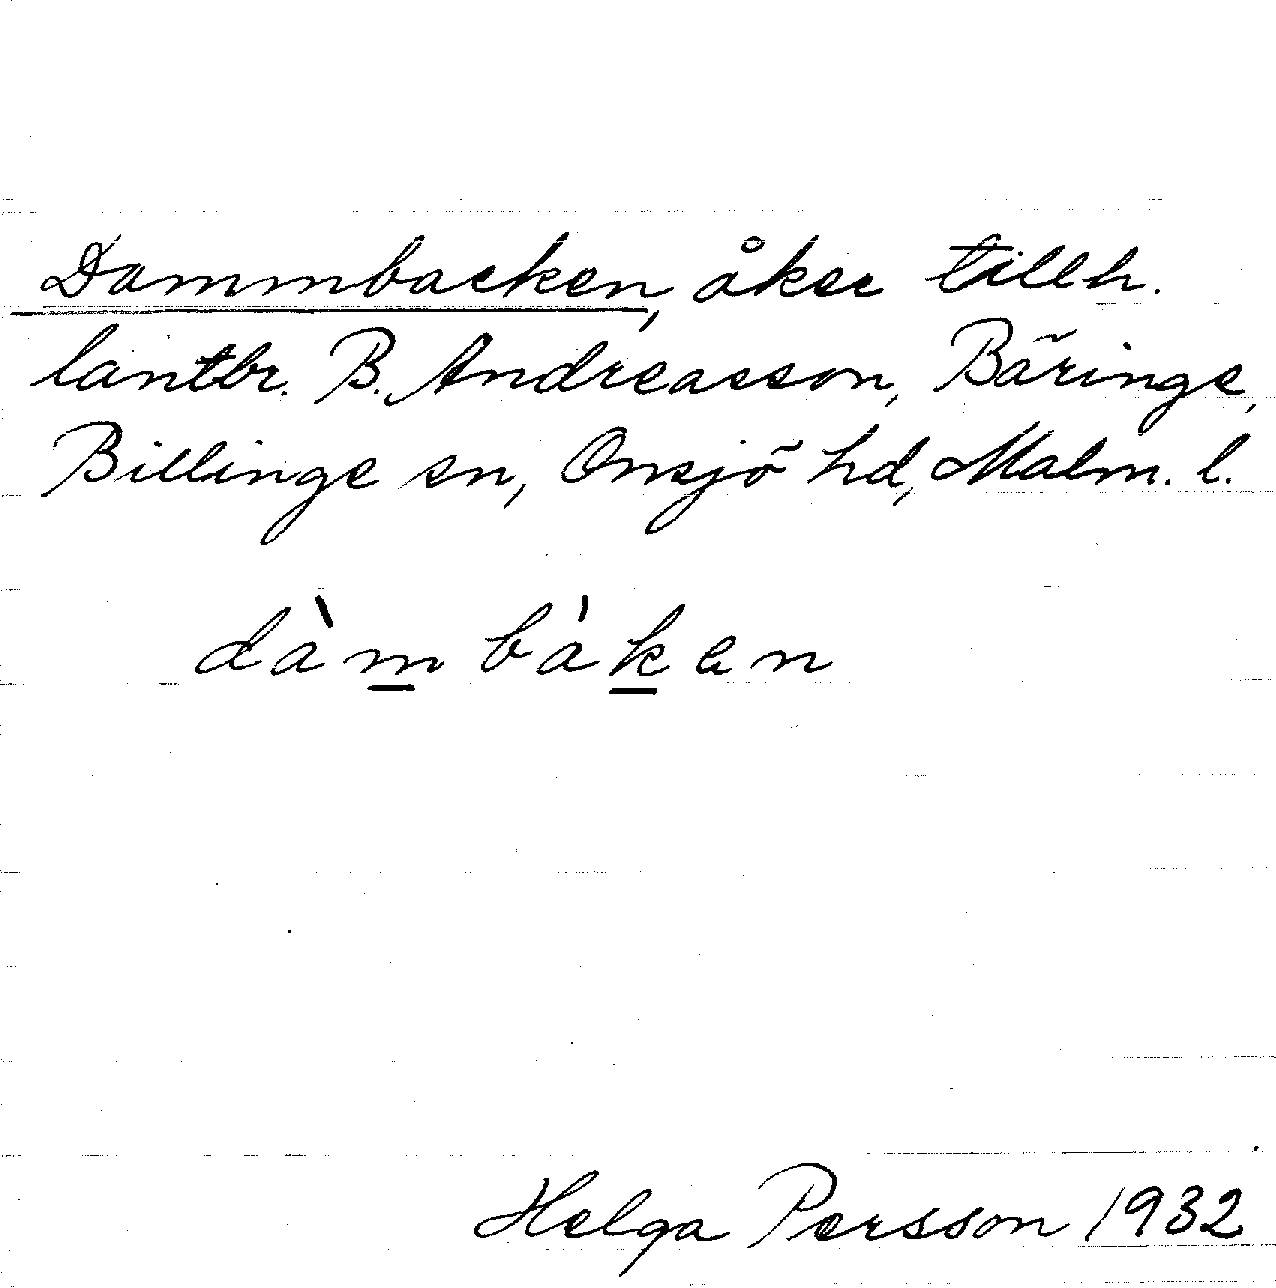 Dammbacken, åker tillh.
lantbr. B. Andreasson, Bäringe,
Billinge sn, Onsjö hd, Malm. l.
dàm̲bàk̲en
Helga Persson 1932